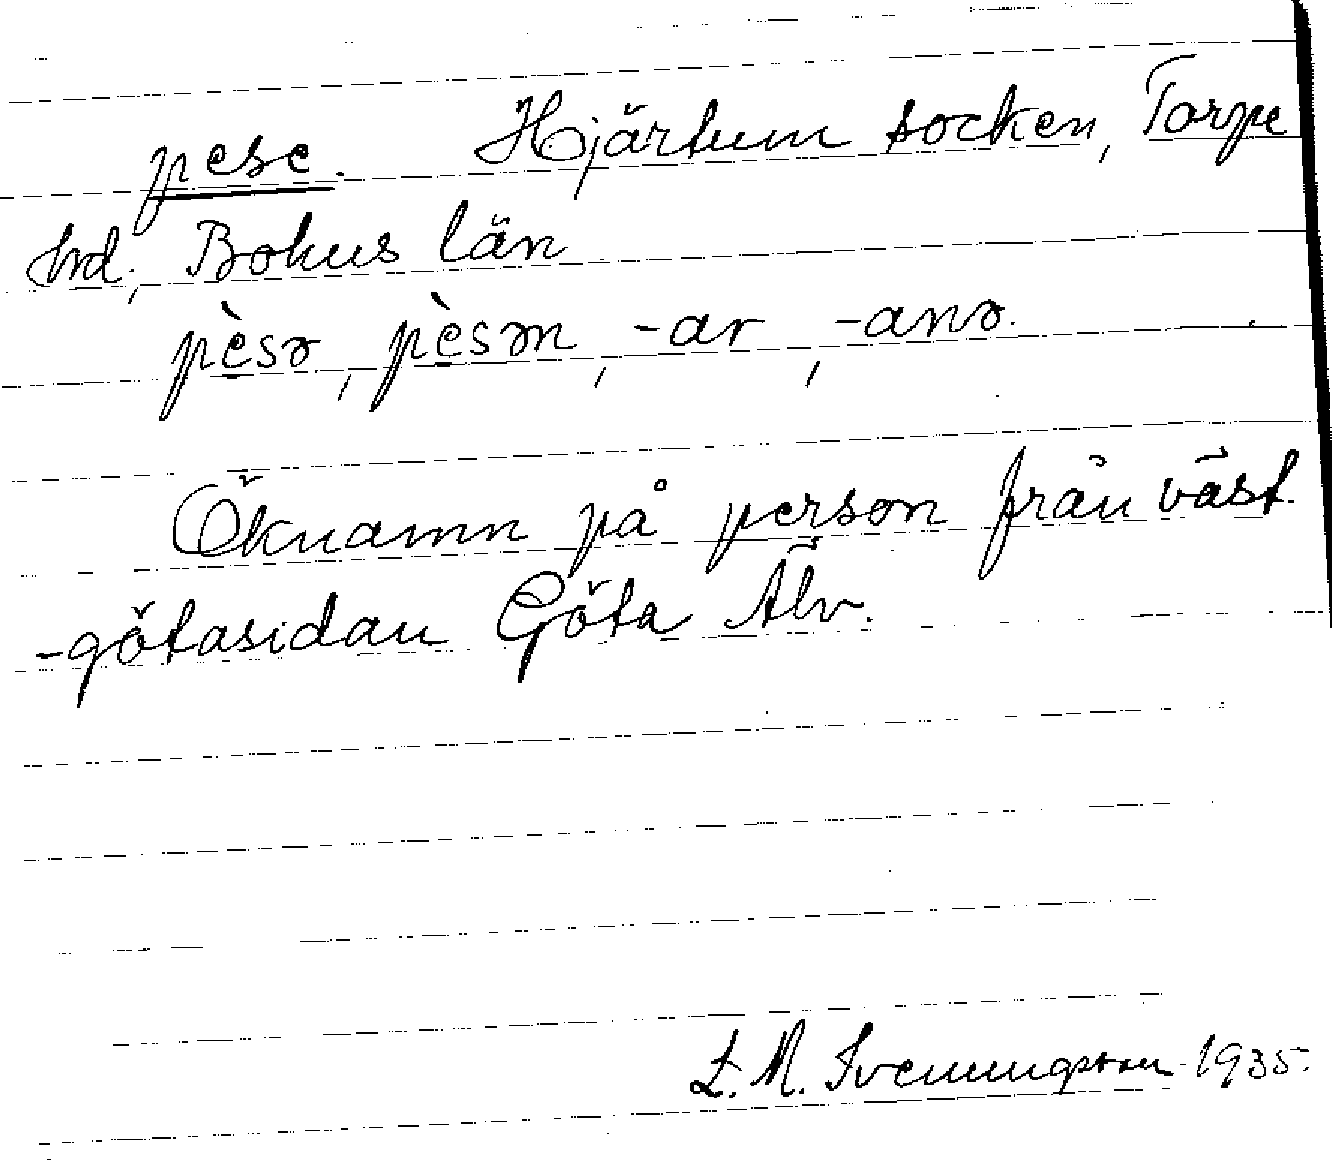 pese. Hjärtum socken, Torpe
hrd., Bohus län
pèsə, pèsən, -ar, -anə.
Öknamn på person från väst-
-götasidan Göta Älv.
L. M. Svenungsson 1935.